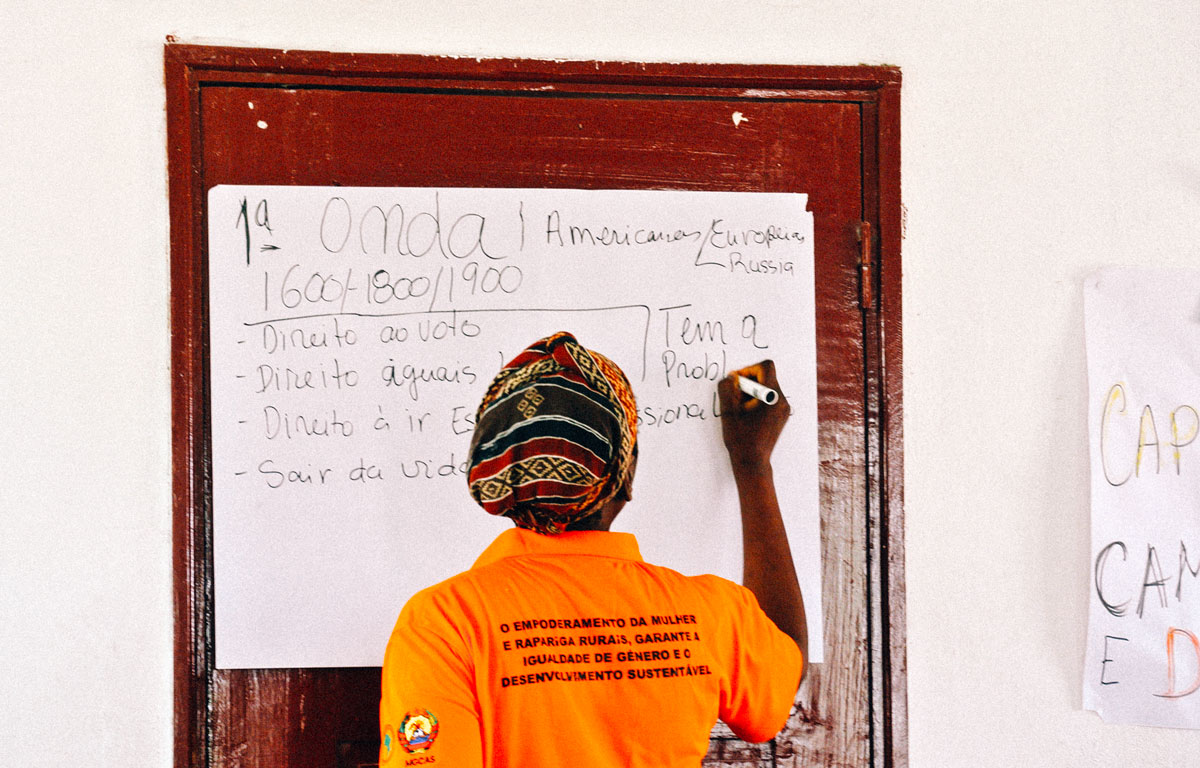 1ª Onda | Americanas / Europeias
Russia
1600/-1800/1900
- Direito ao voto
- Direito águais
Tem a
Probl
- Direito à ir Es
- Sair da vida
O EMPODERAMENTO DA MULHER
E RAPARIGA RURAIS, GARANTE A
IGUALDADE DE GÉNERO E O
DESENVOLVIMENTO SUSTENTÁVEL
MGCAS
CAP
CAM
E D